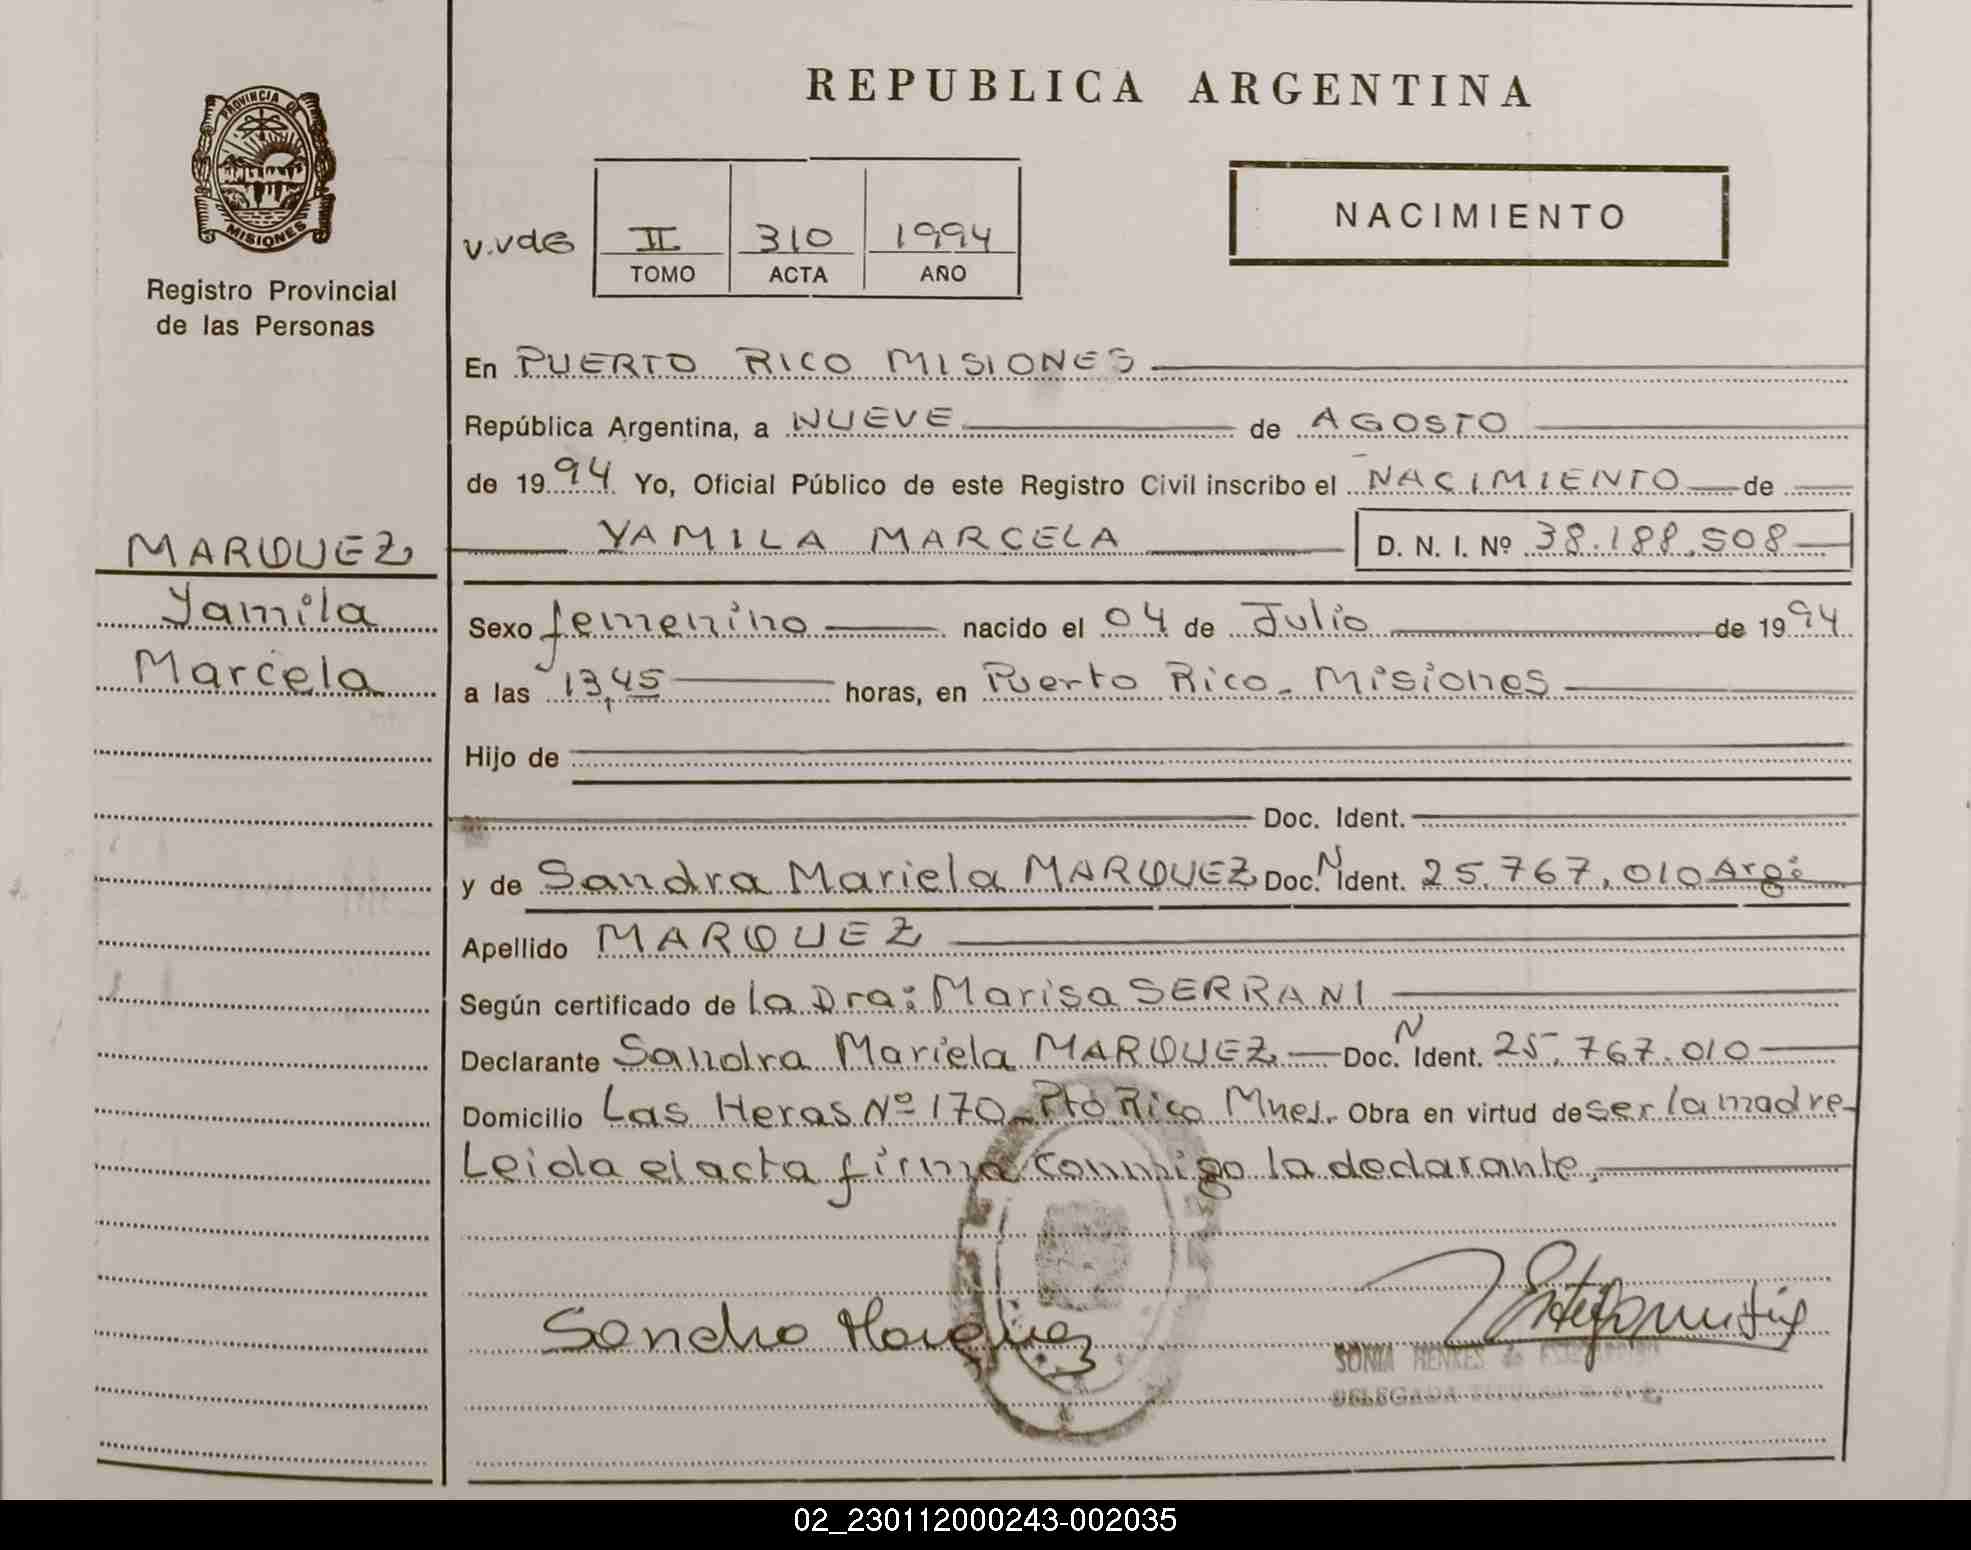 REPUBLICA ARGENTINA
PROVINCIA DE
MISIONES
Registro Provincial
de las Personas
NACIMIENTO
II 310 1994
TOMO ACTA AÑO
En PUERTO RICO MISIONES
República Argentina, a NUEVE de AGOSTO
de 1994 Yo, Oficial Público de este Registro Civil inscribo el NACIMIENTO de
YAMILA MARCELA D. N. I. Nº 38.188.508
MARQUEZ
Yamila
Marcela
Sexo femenino nacido el 04 de Julio de 1994
a las 13,45 horas, en Puerto Rico - Misiones
Hijo de
Doc. Ident.
y de Sandra Mariela MARQUEZ Doc. N Ident. 25.767.010 Arg:
Apellido MARQUEZ
Según certificado de la Dra: Marisa SERRANI
Declarante Sandra Mariela MARQUEZ - Doc. N Ident. 25.767.010
Domicilio Las Heras Nº 170 - Pto Rico Mnes. Obra en virtud de ser la madre -
Leida el acta firma conmigo la declarante.
Sandra Marquez
SONIA HENKES de
DELEGADA
02_230112000243-002035